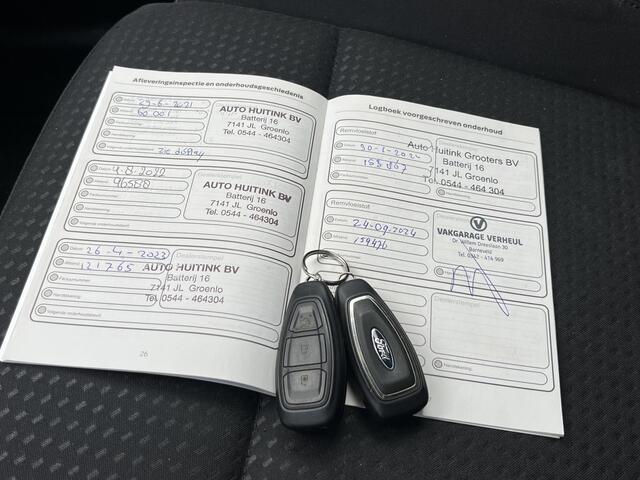 Afleveringsinspectie en onderhoudsgeschiedenis
Datum: 29-6-2021
60.001
AUTO HUITINK BV
Batterij 16
7141 JL Groenlo
Tel. 0544 - 464304
Datum: 4-8-2022
AUTO HUITINK BV
Batterij 16
7141 JL Groenlo
Tel. 0544 - 464304
Dealerstempel
Datum: 26-4-2023
121765
AUTO HUITINK BV
Batterij 16
7141 JL Groenlo
Tel. 0544 - 464304
Handtekening:
Volgende onderhoudsbeurt:
26
Logboek voorgeschreven onderhoud
Remvloeistof
Auto Huitink Grooters BV
Batterij 16
7141 JL Groenlo
Tel. 0544 - 464 304
Remvloeistof
Datum: 24-09-2024
159476
Dealerstempel
VAKGARAGE VERHEUL
Dr. Willem Dreeslaan 30
Barneveld
Tel. 0342 - 414 969
Dealerstempel
Handtekening:
Ford